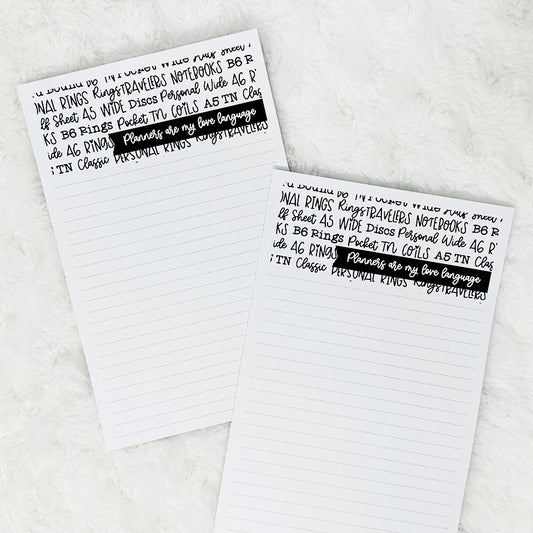 Bound B6 TN Pocket Wide Half Sheet
NAL RINGS Rings TRAVELERS NOTEBOOKS B6 R
lf Sheet A5 WIDE Discs Personal Wide A6 R
KS B6 Rings Pocket TN COILS A5 TN Clas
ide A6 RINGS Planners are my love language
S TN Classic PERSONAL RINGS Rings TRAVELERS
Bound B6 TN Pocket Wide Half Sheet
NAL RINGS Rings TRAVELERS NOTEBOOKS B6
lf Sheet A5 WIDE Discs Personal Wide A6 R
KS B6 Rings Pocket TN COILS A5 TN Clas
ide A6 RINGS Planners are my love language
S TN Classic PERSONAL RINGS Rings TRAVELERS